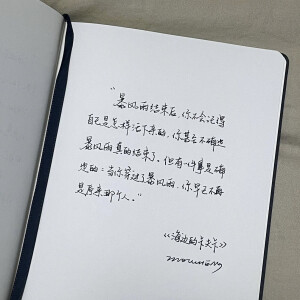 "暴风雨结束后,你不会记得
自己是怎样活下来的,你甚至不确定
暴风雨真的结束了。但有一件事是确
定的:当你穿过了暴风雨,你早已不再
是原来那个人。"
《海边的卡夫卡》